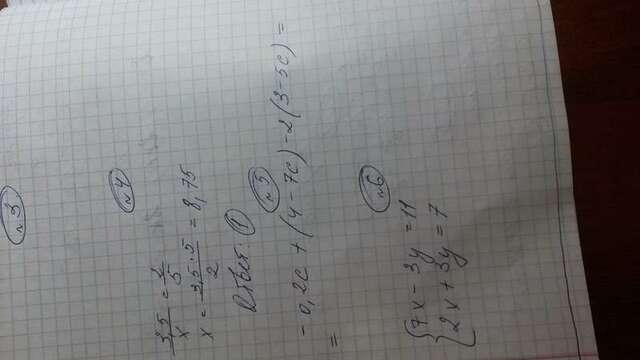 №3
№4
3,5/x = 2/5
x = 3,5·5/2 = 8,75
Ответ: 1
№5
-0,2c + (4-7c) - 2(3-5c) =
=
№6
{7x - 3y = 11
{2x + 3y = 7